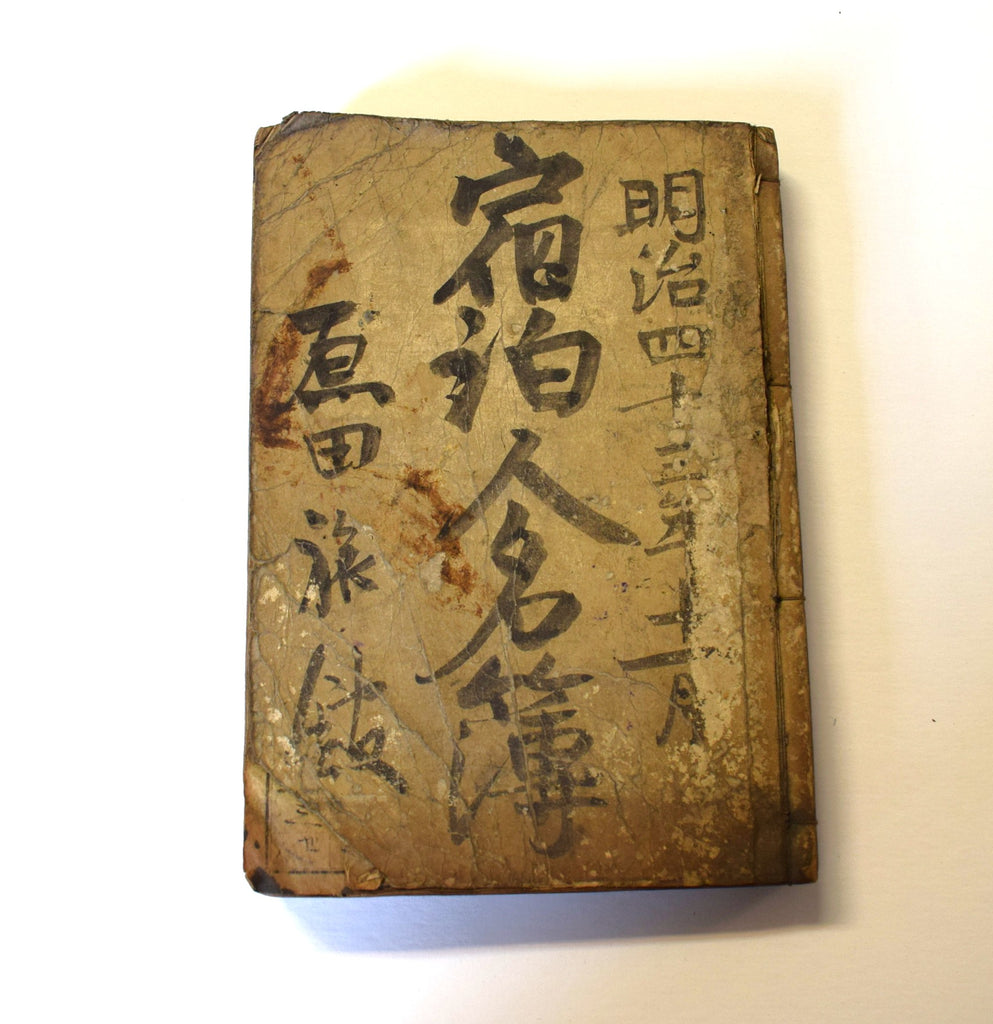 明治四十三年十二月
宿泊人名簿
原田旅館